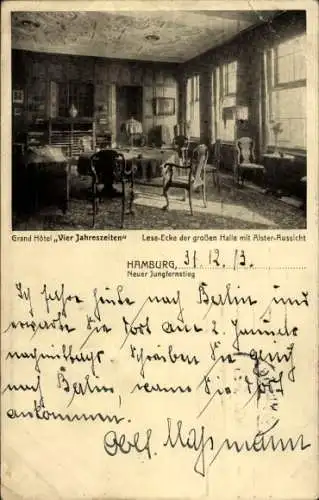 Grand Hôtel „Vier Jahreszeiten" Lese-Ecke der großen Halle mit Alster-Aussicht
HAMBURG, 31.12.13.
Neuer Jungfernstieg
Ich fahre heute nach Berlin und
erwarte Sie dort am 2. Januar
nachmittags. Schreiben Sie gleich
nach Berlin, wann Sie dort
ankommen.
Maßmann